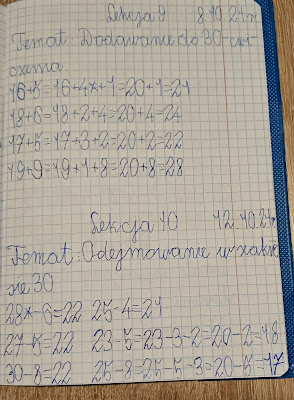 Lekcja 9 8.10.21r
Temat: Dodawanie do 30-ćwi-
czenia
16+5=16+4+1=20+1=21
18+6=18+2+4=20+4=24
17+5=17+3+2=20+2=22
19+9=19+1+8=20+8=28
Lekcja 10 12.10.21r
Temat: Odejmowanie w zakre
sie 30
28-6=22 25-4=21
27-5=22 23-5=23-3-2=20-2=18
30-8=22 25-8=25-5-3=20-5=17